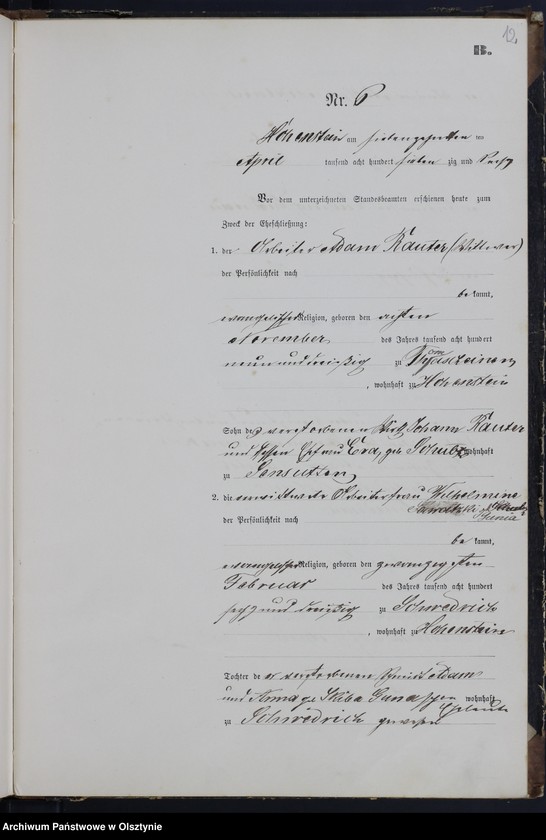 12.
B.
Nr. 6
Hohenstein am siebenzehnten
April tausend acht hundert sieben zig und
Vor dem unterzeichneten Standesbeamten erschienen heute zum
Zweck der Eheschließung:
1. der Arbeiter Adam Kauter (Wittwer)
der Persönlichkeit nach
be kannt,
evangelischer Religion, geboren den achten
November des Jahres tausend acht hundert
neun und dreißig zu
, wohnhaft zu Hohenstein
Sohn des verstorbenen Wirth Johann Kauter
und dessen Ehefrau Eva, geb. wohnhaft
zu Gansutten
2. die verwittwete Arbeiterfrau Wilhelmine
Gunia
der Persönlichkeit nach
be kannt,
evangelischer Religion, geboren den zwanzigsten
Februar des Jahres tausend acht hundert
sechs und dreißig zu Schwedrich
, wohnhaft zu Hohenstein
Tochter der verstorbenen Adam
und Anna g. Skiba Guna wohnhaft
Eheleute
zu Schwedrich gewesen
Archiwum Państwowe w Olsztynie